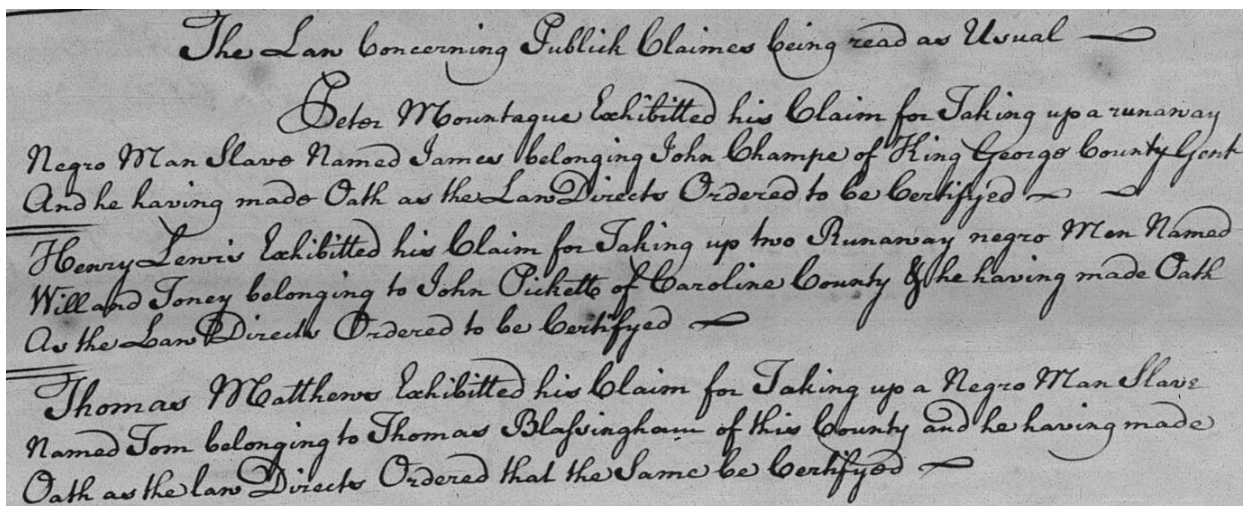 The Law Concerning Publick Claimes being read as Usual
Peter Mountague Exhibitted his Claim for Taking up a runaway
Negro Man Slave Named James belonging John Champe of King George County Gent
And he having made Oath as the Law Directs Ordered to be Certifyed
Henry Lewis Exhibitted his Claim for Taking up two Runaway negro Men Named
Will and Toney belonging to John Pickett of Caroline County & he having made Oath
As the Law Directs Ordered to be Certifyed
Thomas Matthews Exhibitted his Claim for Taking up a Negro Man Slave
Named Tom belonging to Thomas Blassingham of this County and he having made
Oath as the law Directs Ordered that the Same be Certifyed